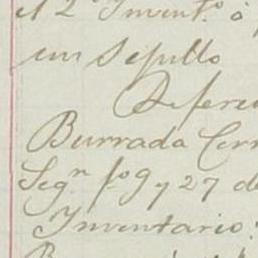 el 2º Inventº. ó
un sepillo
Referen
Burrada Cerr
Segn. fº. 9 y 27 de
Inventario.